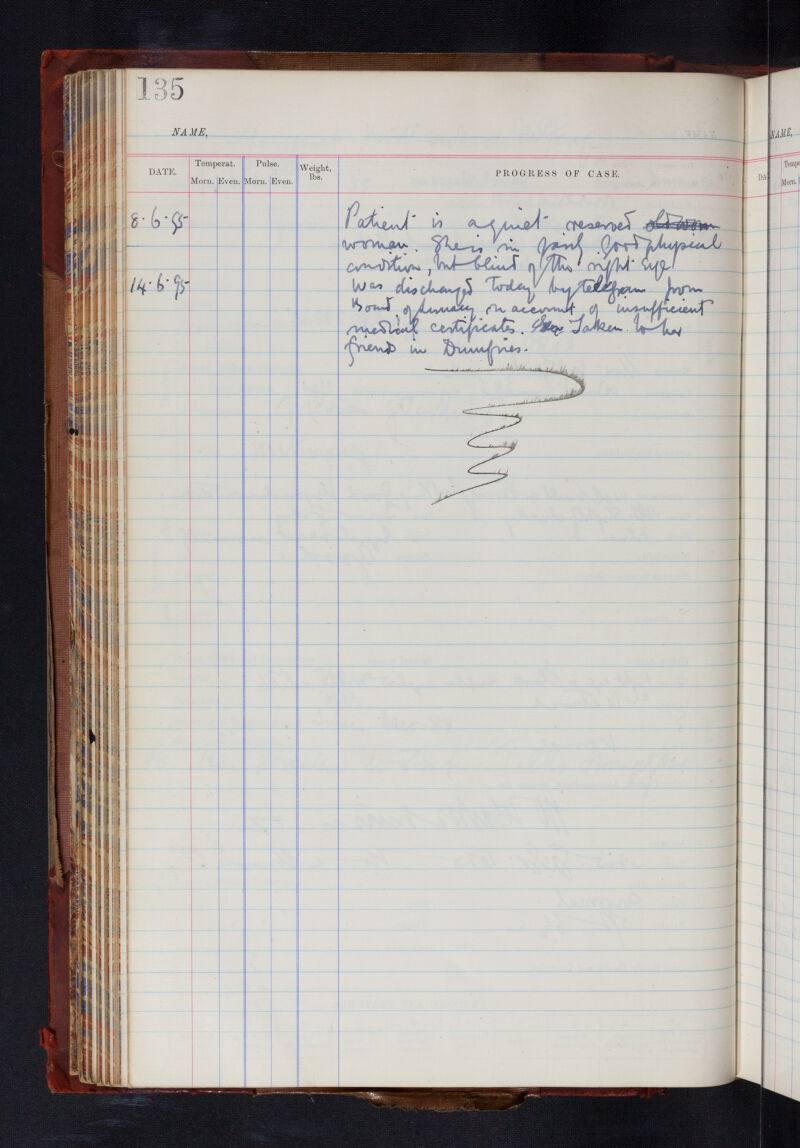 135
NAME,
NAME,
DATE.
Temperat.
Pulse.
Weight, lbs.
PROGRESS OF CASE.
Morn. Even. Morn. Even.
8·6·95 Patient is a quiet reserved old wom
woman. She is in fairly good physical
condition, but blind of the right eye.
14·6·95 Was discharged today by telegram from
Board of Lunacy on account of insufficient
medical certificates. Taken to her
friends in Dumfries.
Morn.